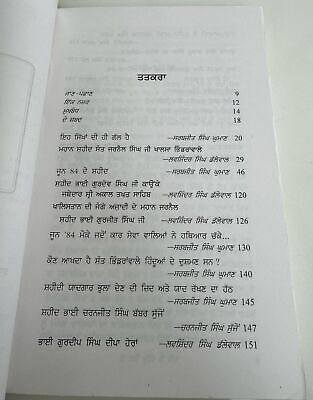 ਤਤਕਰਾ
ਜਾਣ-ਪਛਾਣ 9
ਇੱਕ ਨਜ਼ਰ 12
ਮੁਖਬੰਧ 14
ਦੋ ਸ਼ਬਦ 18
ਇਹ ਸਿੱਖਾਂ ਦੀ ਹੀ ਗੱਲ ਹੈ —ਸਰਬਜੀਤ ਸਿੰਘ ਘੁਮਾਣ 20
ਮਹਾਨ ਸ਼ਹੀਦ ਸੰਤ ਜਰਨੈਲ ਸਿੰਘ ਜੀ ਖਾਲਸਾ ਭਿੰਡਰਾਂਵਾਲੇ
—ਲਵਸ਼ਿੰਦਰ ਸਿੰਘ ਡੱਲੇਵਾਲ 29
ਜੂਨ '84 ਦੇ ਸ਼ਹੀਦ —ਸਰਬਜੀਤ ਸਿੰਘ ਘੁਮਾਣ 46
ਸ਼ਹੀਦ ਭਾਈ ਗੁਰਦੇਵ ਸਿੰਘ ਕਾਉਂਕੇ
ਜਥੇਦਾਰ ਸ੍ਰੀ ਅਕਾਲ ਤਖਤ ਸਾਹਿਬ —ਲਵਸ਼ਿੰਦਰ ਸਿੰਘ ਡੱਲੇਵਾਲ 120
ਖਾਲਿਸਤਾਨ ਦੀ ਜੰਗੇ ਅਜ਼ਾਦੀ ਦੇ ਮਹਾਨ ਜਰਨੈਲ
ਸ਼ਹੀਦ ਭਾਈ ਗੁਰਜੀਤ ਸਿੰਘ ਜੀ —ਲਵਸ਼ਿੰਦਰ ਸਿੰਘ ਡੱਲੇਵਾਲ 126
ਜੂਨ '84 ਮੌਕੇ ਜਦੋਂ ਕਾਰ ਸੇਵਾ ਵਾਲਿਆਂ ਨੇ ਹਥਿਆਰ ਚੱਕੇ...
—ਸਰਬਜੀਤ ਸਿੰਘ ਘੁਮਾਣ 130
ਕੌਣ ਆਖਦਾ ਹੈ ਸੰਤ ਭਿੰਡਰਾਂਵਾਲੇ ਹਿੰਦੂਆਂ ਦੇ ਦੁਸ਼ਮਣ ਸਨ ?
—ਸਰਬਜੀਤ ਸਿੰਘ ਘੁਮਾਣ 140
ਸ਼ਹੀਦੀ ਯਾਦਗਾਰ ਭੁਲਾ ਦੇਣ ਦੀ ਜ਼ਿਦ ਅਤੇ ਯਾਦ ਰੱਖਣ ਦਾ ਹੱਠ
—ਸਰਬਜੀਤ ਸਿੰਘ ਘੁਮਾਣ 145
ਸ਼ਹੀਦ ਭਾਈ ਚਰਨਜੀਤ ਸਿੰਘ ਬੱਬਰ ਸੁੱਜੋਂ
—ਚਰਨਜੀਤ ਸਿੰਘ ਸੁੱਜੋਂ 147
ਭਾਈ ਗੁਰਦੀਪ ਸਿੰਘ ਦੀਪਾ ਹੇਰਾਂ —ਲਵਸ਼ਿੰਦਰ ਸਿੰਘ ਡੱਲੇਵਾਲ 151